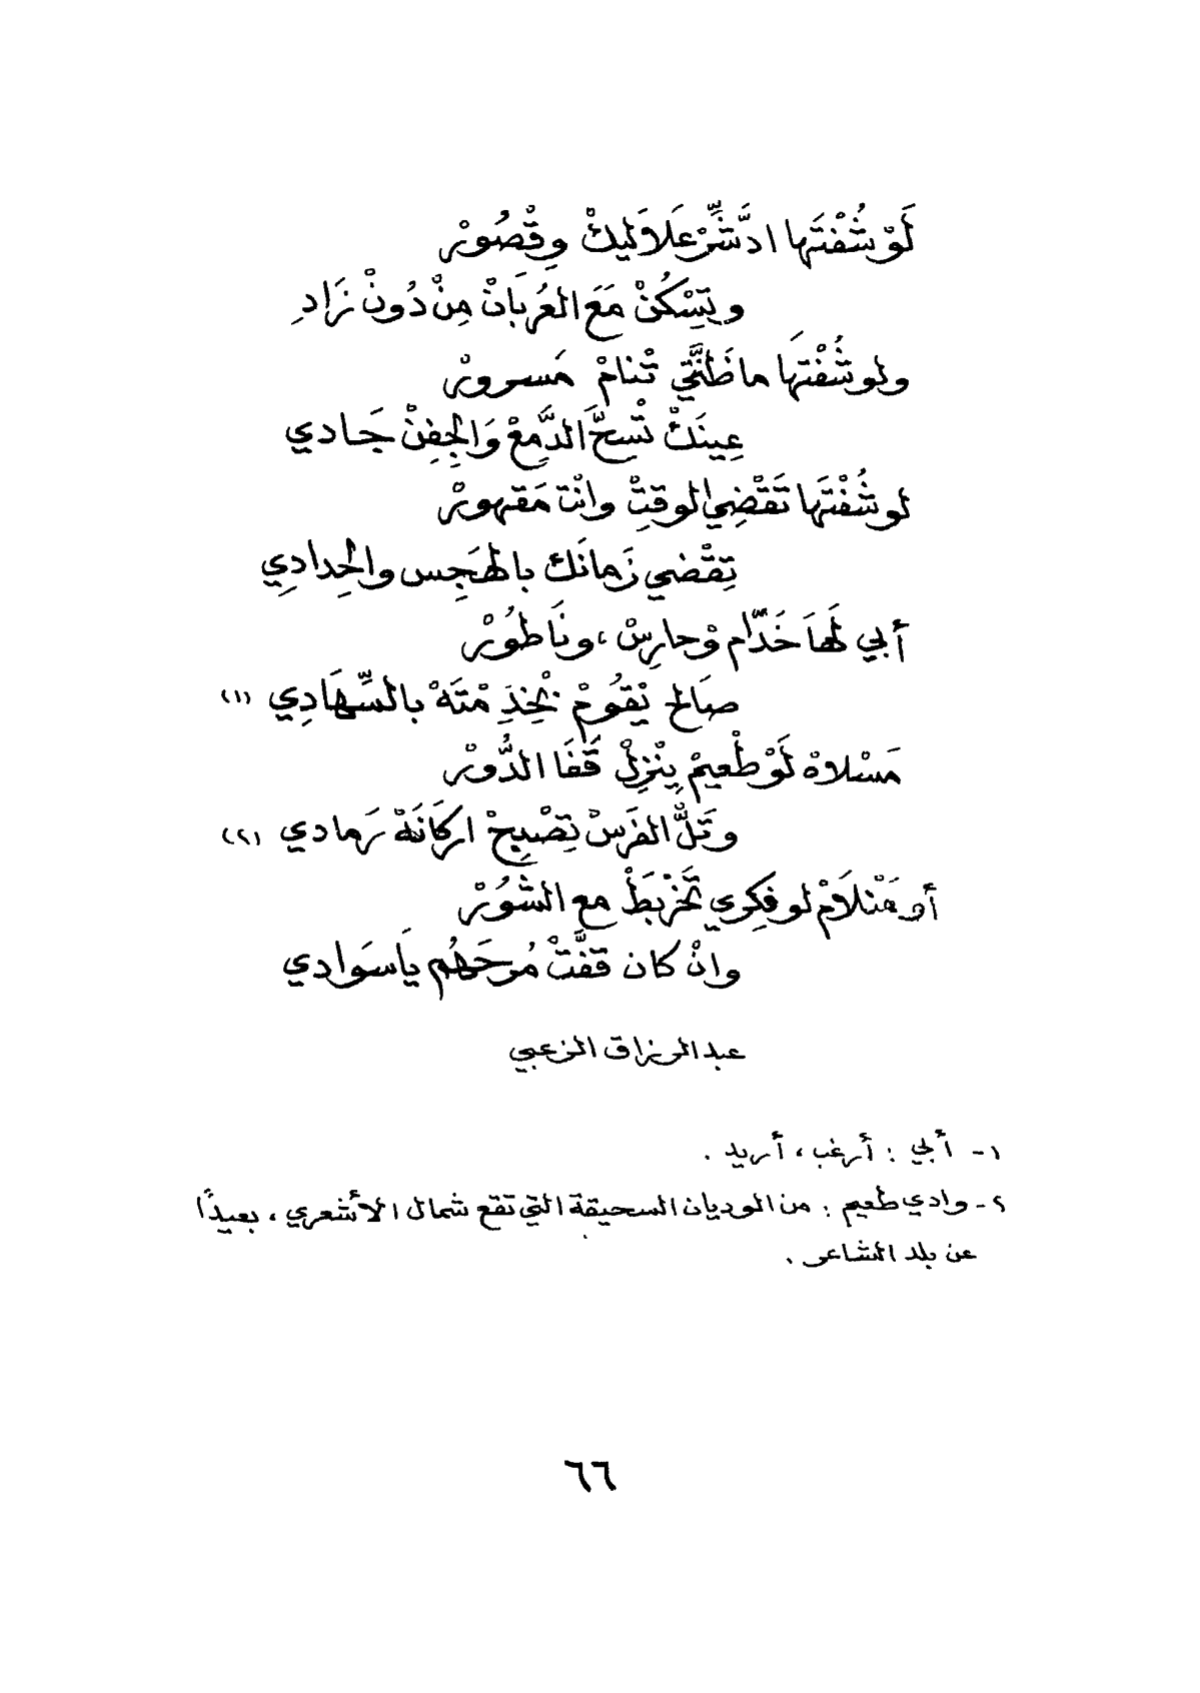 لَوْ شُفْتَها ادَّشِّرْ عَلَالَيكْ وِقْصُورْ
وِتِسْكُنْ مَعَ العُربَانْ مِنْ دُونْ زَادِ
ولو شُفْتَها ما ظَنَّتي تْنامْ مَسرورْ
عِينَكْ تْسِحَّ الدَّمِعْ وَالجِفِنْ جَادي
لو شُفْتَها تَقْضِي الوقِتْ وانْتَ مَقهورْ
تِقْضي زَمانَك بالهَجِس والحِدادِي
أبي لَهاَ خَدّام وْحارِسْ، ونَاطُورْ
صَالح يْقُومْ بْخِذِمْتَهْ بالسِّهَادِي (١)
مَسْلاهْ لَوْ طْعيمْ يِنْزِلْ قَفَا الدُّورْ
وتَلُّ الفَرَسْ تِصْبِحْ اركَانَهْ رَمادي (٢)
لو فِكِري تَخَرْبَطْ مع الشُوُرْ
وانْ كان قفَّتْ مُرحَهُم يَاسَوادي
عبدالرزاق الزعبي
١- أبي : أرغب، أريد .
٢- وادي طعيم : من الوديان السحيقة التي تقع شمال الأشعري، بعيداً
عن بلد الشاعر .
٦٦